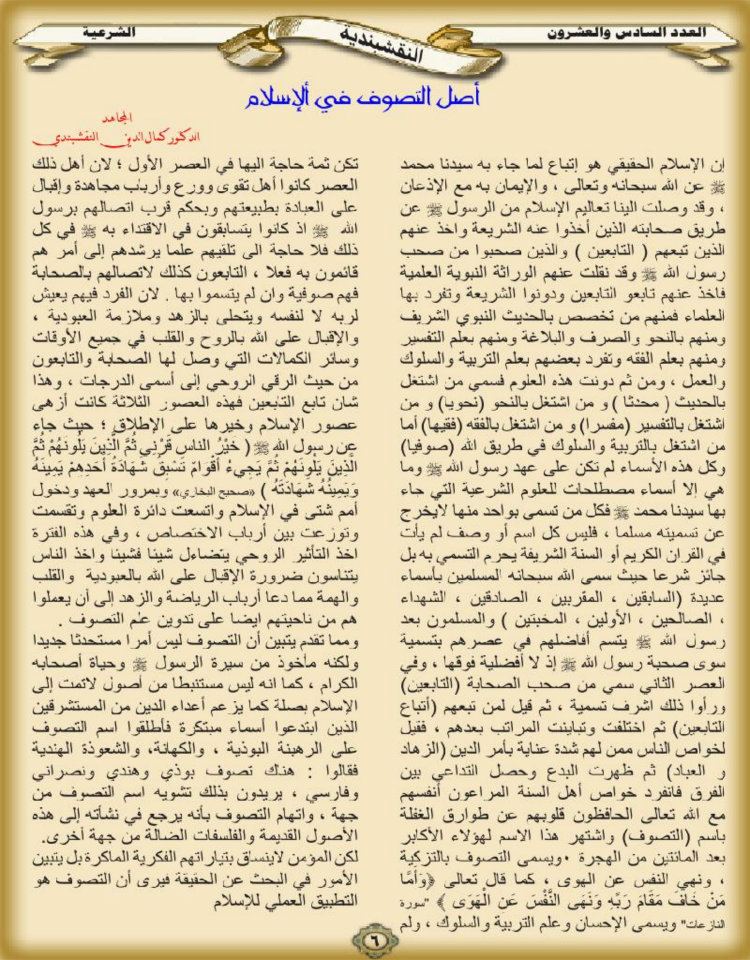 العدد السادس والعشرون
النقشبندية
الشرعية
أصل التصوف في ألإسلام
المجاهد
الدكتور كمال الدين النقشبندي
إن الإسلام الحقيقي هو إتباع لما جاء به سيدنا محمد
ﷺ عن الله سبحانه وتعالى ، والإيمان به مع الإذعان
، وقد وصلت الينا تعاليم الإسلام من الرسول ﷺ عن
طريق صحابته الذين أخذوا عنه الشريعة واخذ عنهم
الذين تبعهم ( التابعين ) والذين صحبوا من صحب
رسول الله ﷺ وقد نقلت عنهم الوراثة النبوية العلمية
فاخذ عنهم تابعو التابعين ودونوا الشريعة وتفرد بها
العلماء فمنهم من تخصص بالحديث النبوي الشريف
ومنهم بالنحو والصرف والبلاغة ومنهم بعلم التفسير
ومنهم بعلم الفقه وتفرد بعضهم بعلم التربية والسلوك
والعمل ، ومن ثم دونت هذه العلوم فسمي من اشتغل
بالحديث ( محدثا ) و من اشتغل بالنحو (نحويا) و من
اشتغل بالتفسير (مفسرا) و من اشتغل بالفقه (فقيها) أما
من اشتغل بالتربية والسلوك في طريق الله (صوفيا)
وكل هذه الأسماء لم تكن على عهد رسول الله ﷺ وما
هي إلا أسماء مصطلحات للعلوم الشرعية التي جاء
بها سيدنا محمد ﷺ فكل من تسمى بواحد منها لايخرج
عن تسميته مسلما ، فليس كل اسم أو وصف لم يأت
في القران الكريم أو السنة الشريفة يحرم التسمي به بل
جائز شرعا حيث سمى الله سبحانه المسلمين بأسماء
عديدة (السابقين ، المقربين ، الصادقين ، الشهداء
، الصالحين ، الأولين ، المخبتين ) والمسلمون بعد
رسول الله ﷺ يتسم أفاضلهم في عصرهم بتسمية
سوى صحبة رسول الله ﷺ إذ لا أفضلية فوقها ، وفي
العصر الثاني سمي من صحب الصحابة (التابعين)
ورأوا ذلك اشرف تسمية ، ثم قيل لمن تبعهم (أتباع
التابعين) ثم اختلفت وتباينت المراتب بعدهم ، فقيل
لخواص الناس ممن لهم شدة عناية بأمر الدين (الزهاد
و العباد) ثم ظهرت البدع وحصل التداعي بين
الفرق فانفرد خواص أهل السنة المراعون أنفسهم
مع الله تعالى الحافظون قلوبهم عن طوارق الغفلة
باسم (التصوف) واشتهر هذا الاسم لهؤلاء الأكابر
بعد المائتين من الهجرة ٠ويسمى التصوف بالتزكية
، ونهي النفس عن الهوى ، كما قال تعالى ﴿وَأَمَّا
مَنْ خَافَ مَقَامَ رَبِّهِ وَنَهَى النَّفْسَ عَنِ الْهَوَى ﴾ "سورة
النازعات" ويسمى الإحسان وعلم التربية والسلوك ، ولم
تكن ثمة حاجة اليها في العصر الأول ؛ لان أهل ذلك
العصر كانوا أهل تقوى وورع وأرباب مجاهدة وإقبال
على العبادة بطبيعتهم وبحكم قرب اتصالهم برسول
الله ﷺ اذ كانوا يتسابقون في الاقتداء به ﷺ في كل
ذلك فلا حاجة الى تلفيهم علما يرشدهم إلى أمر هم
قائمون به فعلا ، التابعون كذلك لاتصالهم بالصحابة
فهم صوفية وان لم يتسموا بها . لان الفرد فيهم يعيش
لربه لا لنفسه ويتحلى بالزهد وملازمة العبودية ،
والإقبال على الله بالروح والقلب في جميع الأوقات
وسائر الكمالات التي وصل لها الصحابة والتابعون
من حيث الرقي الروحي إلى أسمى الدرجات ، وهذا
شان تابع التابعين فهذه العصور الثلاثة كانت أزهى
عصور الإسلام وخيرها على الإطلاق ؛ حيث جاء
عن رسول الله ﷺ ( خَيْرُ الناسِ قَرْنِي ثُمَّ الَّذِينَ يَلُونَهُمْ ثُمَّ
الَّذِينَ يَلُونَهُمْ ثُمَّ يَجِيءُ أَقْوَامٌ تَسْبِقُ شَهَادَةُ أَحَدِهِمْ يَمِينَهُ
وَيَمِينُهُ شَهَادَتَهُ ) «صحيح البخاري» وبمرور العهد ودخول
أمم شتى في الإسلام واتسعت دائرة العلوم وتقسمت
وتوزعت بين أرباب الاختصاص ، وفي هذه الفترة
اخذ التأثير الروحي يتضاءل شيئا فشيئا واخذ الناس
يتناسون ضرورة الإقبال على الله بالعبودية والقلب
والهمة مما دعا أرباب الرياضة والزهد إلى أن يعملوا
هم من ناحيتهم ايضا على تدوين علم التصوف .
ومما تقدم يتبين أن التصوف ليس أمرا مستحدثا جديدا
ولكنه مأخوذ من سيرة الرسول ﷺ وحياة أصحابه
الكرام ، كما انه ليس مستنبطا من أصول لاتمت إلى
الإسلام بصلة كما يزعم أعداء الدين من المستشرقين
الذين ابتدعوا أسماء مبتكرة فأطلقوا اسم التصوف
على الرهبنة البوذية ، والكهانة، والشعوذة الهندية
فقالوا : هناك تصوف بوذي وهندي ونصراني
وفارسي ، يريدون بذلك تشويه اسم التصوف من
جهة ، واتهام التصوف بأنه يرجع في نشأته إلى هذه
الأصول القديمة والفلسفات الضالة من جهة أخرى.
لكن المؤمن لاينساق بتياراتهم الفكرية الماكرة بل يتبين
الأمور في البحث عن الحقيقة فيرى أن التصوف هو
التطبيق العملي للإسلام
٦